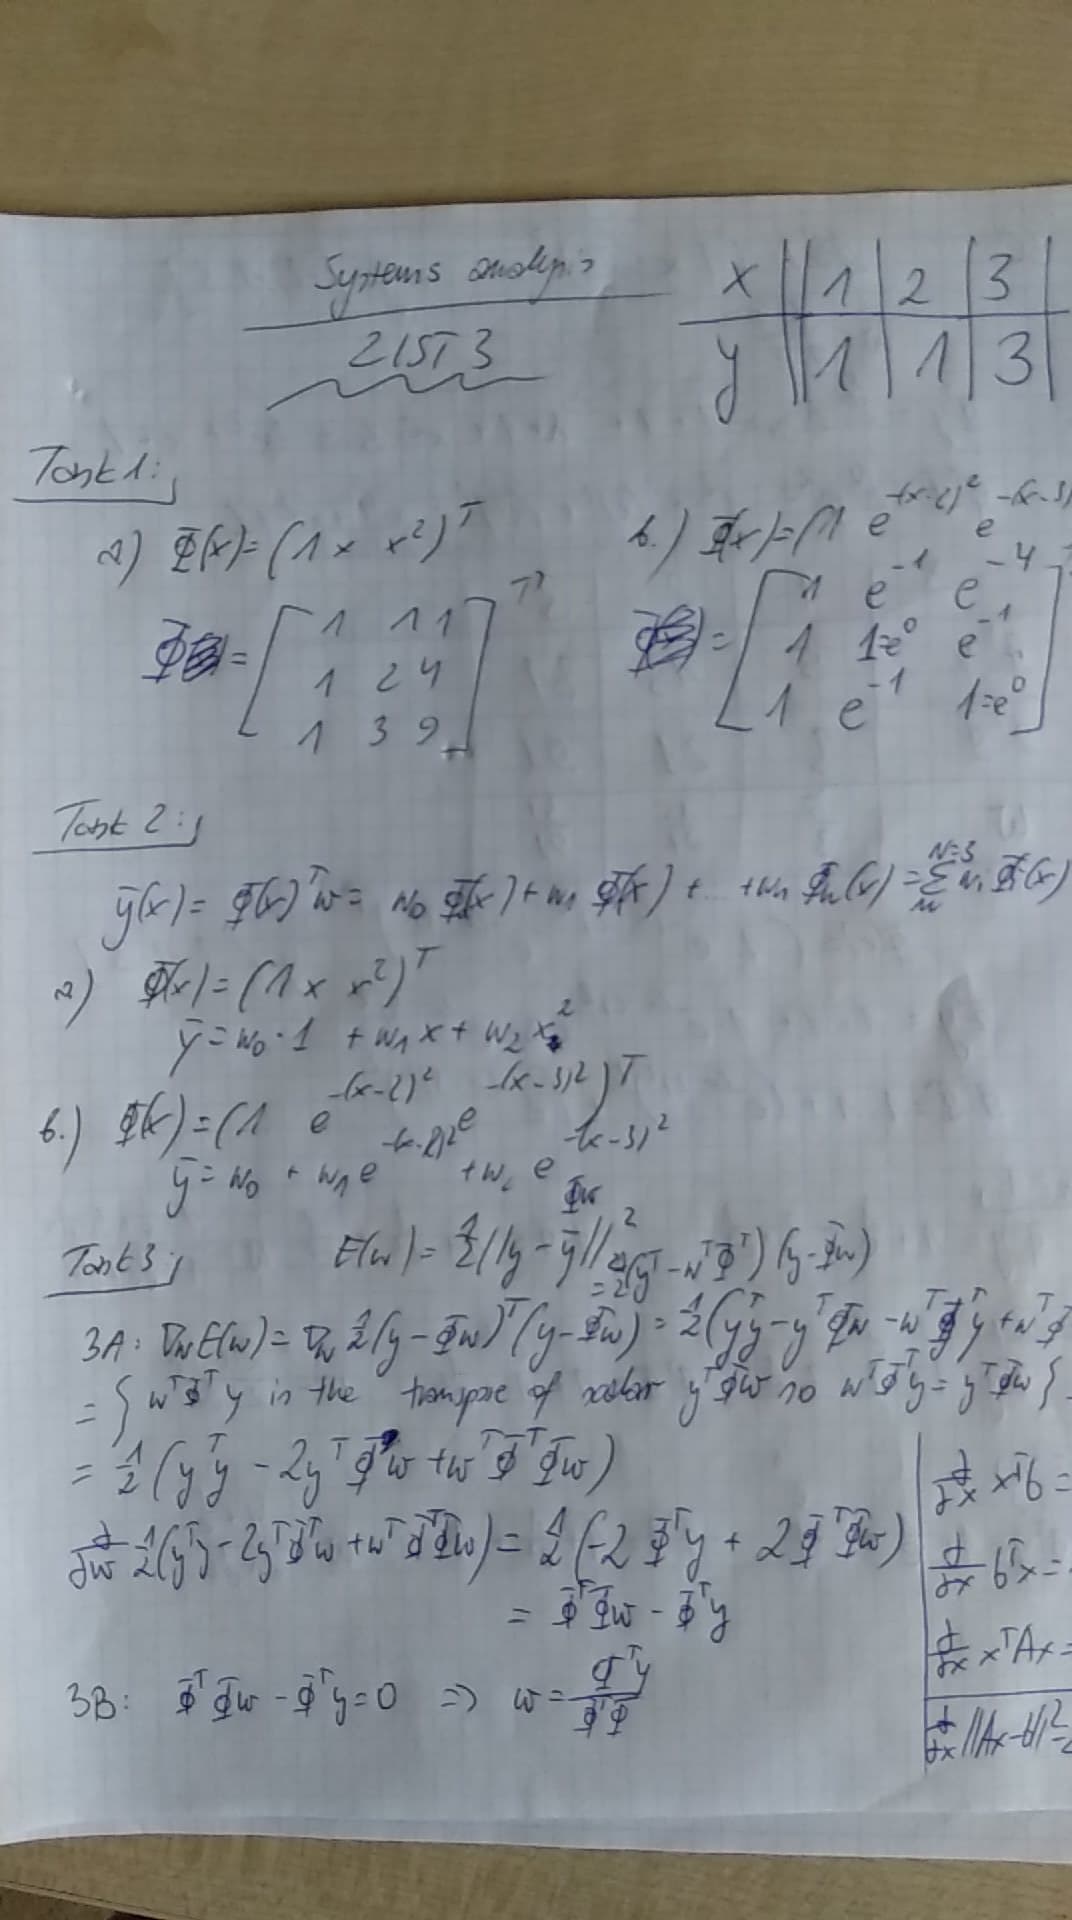 Systems analysis
2 IST 3
x || 1 | 2 | 3 |
y || 1 | 1 | 3 |
Task 1:
a) Φ(x) = (1 x x²)ᵀ
Φ = [1 1 1
1 2 4
1 3 9]ᵀ
b.) Φ(x) = (1 e^-(x-2)² e^-(x-3)
Φ = [1 e^-1 e^-4
1 1=e^0 e^-1
1 e^-1 1=e^0]
Task 2:
ȳ(x) = Φ(x)ᵀw = w₀ Φ(x) + w₁ Φ₁(x) + ... + wₙ Φₙ(x) = Σ^N=3 wᵢ Φᵢ(x)
a) Φ(x) = (1 x x²)ᵀ
ȳ = w₀·1 + w₁x + w₂x²
b.) Φ(x) = (1 e^-(x-2)² e^-(x-3)²)ᵀ
ȳ = w₀ + w₁e^-(x-2)² + w₂ e^-(x-3)²
Φw
Task 3:
E(w) = 1/2 ||y - ȳ||² = 1/2 (yᵀ - wᵀΦᵀ)(y - Φw)
3A: ∇wE(w) = ∇w 1/2 (y - Φw)ᵀ(y - Φw) = 1/2 (yᵀy - yᵀΦw - wᵀΦᵀy + wᵀΦ
= { wᵀΦᵀy is the transpose of scalar yᵀΦw so wᵀΦᵀy = yᵀΦw }
= 1/2 (yᵀy - 2yᵀΦw + wᵀΦᵀΦw)
∂/∂w 1/2 (yᵀy - 2yᵀΦᵀw + wᵀΦᵀΦw) = 1/2 (-2Φᵀy + 2ΦᵀΦw)
= ΦᵀΦw - Φᵀy
3B: ΦᵀΦw - Φᵀy = 0 => w = Φᵀy / ΦᵀΦ
∂/∂x xᵀb =
∂/∂x bᵀx =
∂/∂x xᵀAx =
∂/∂x ||Ax-b||² = 2